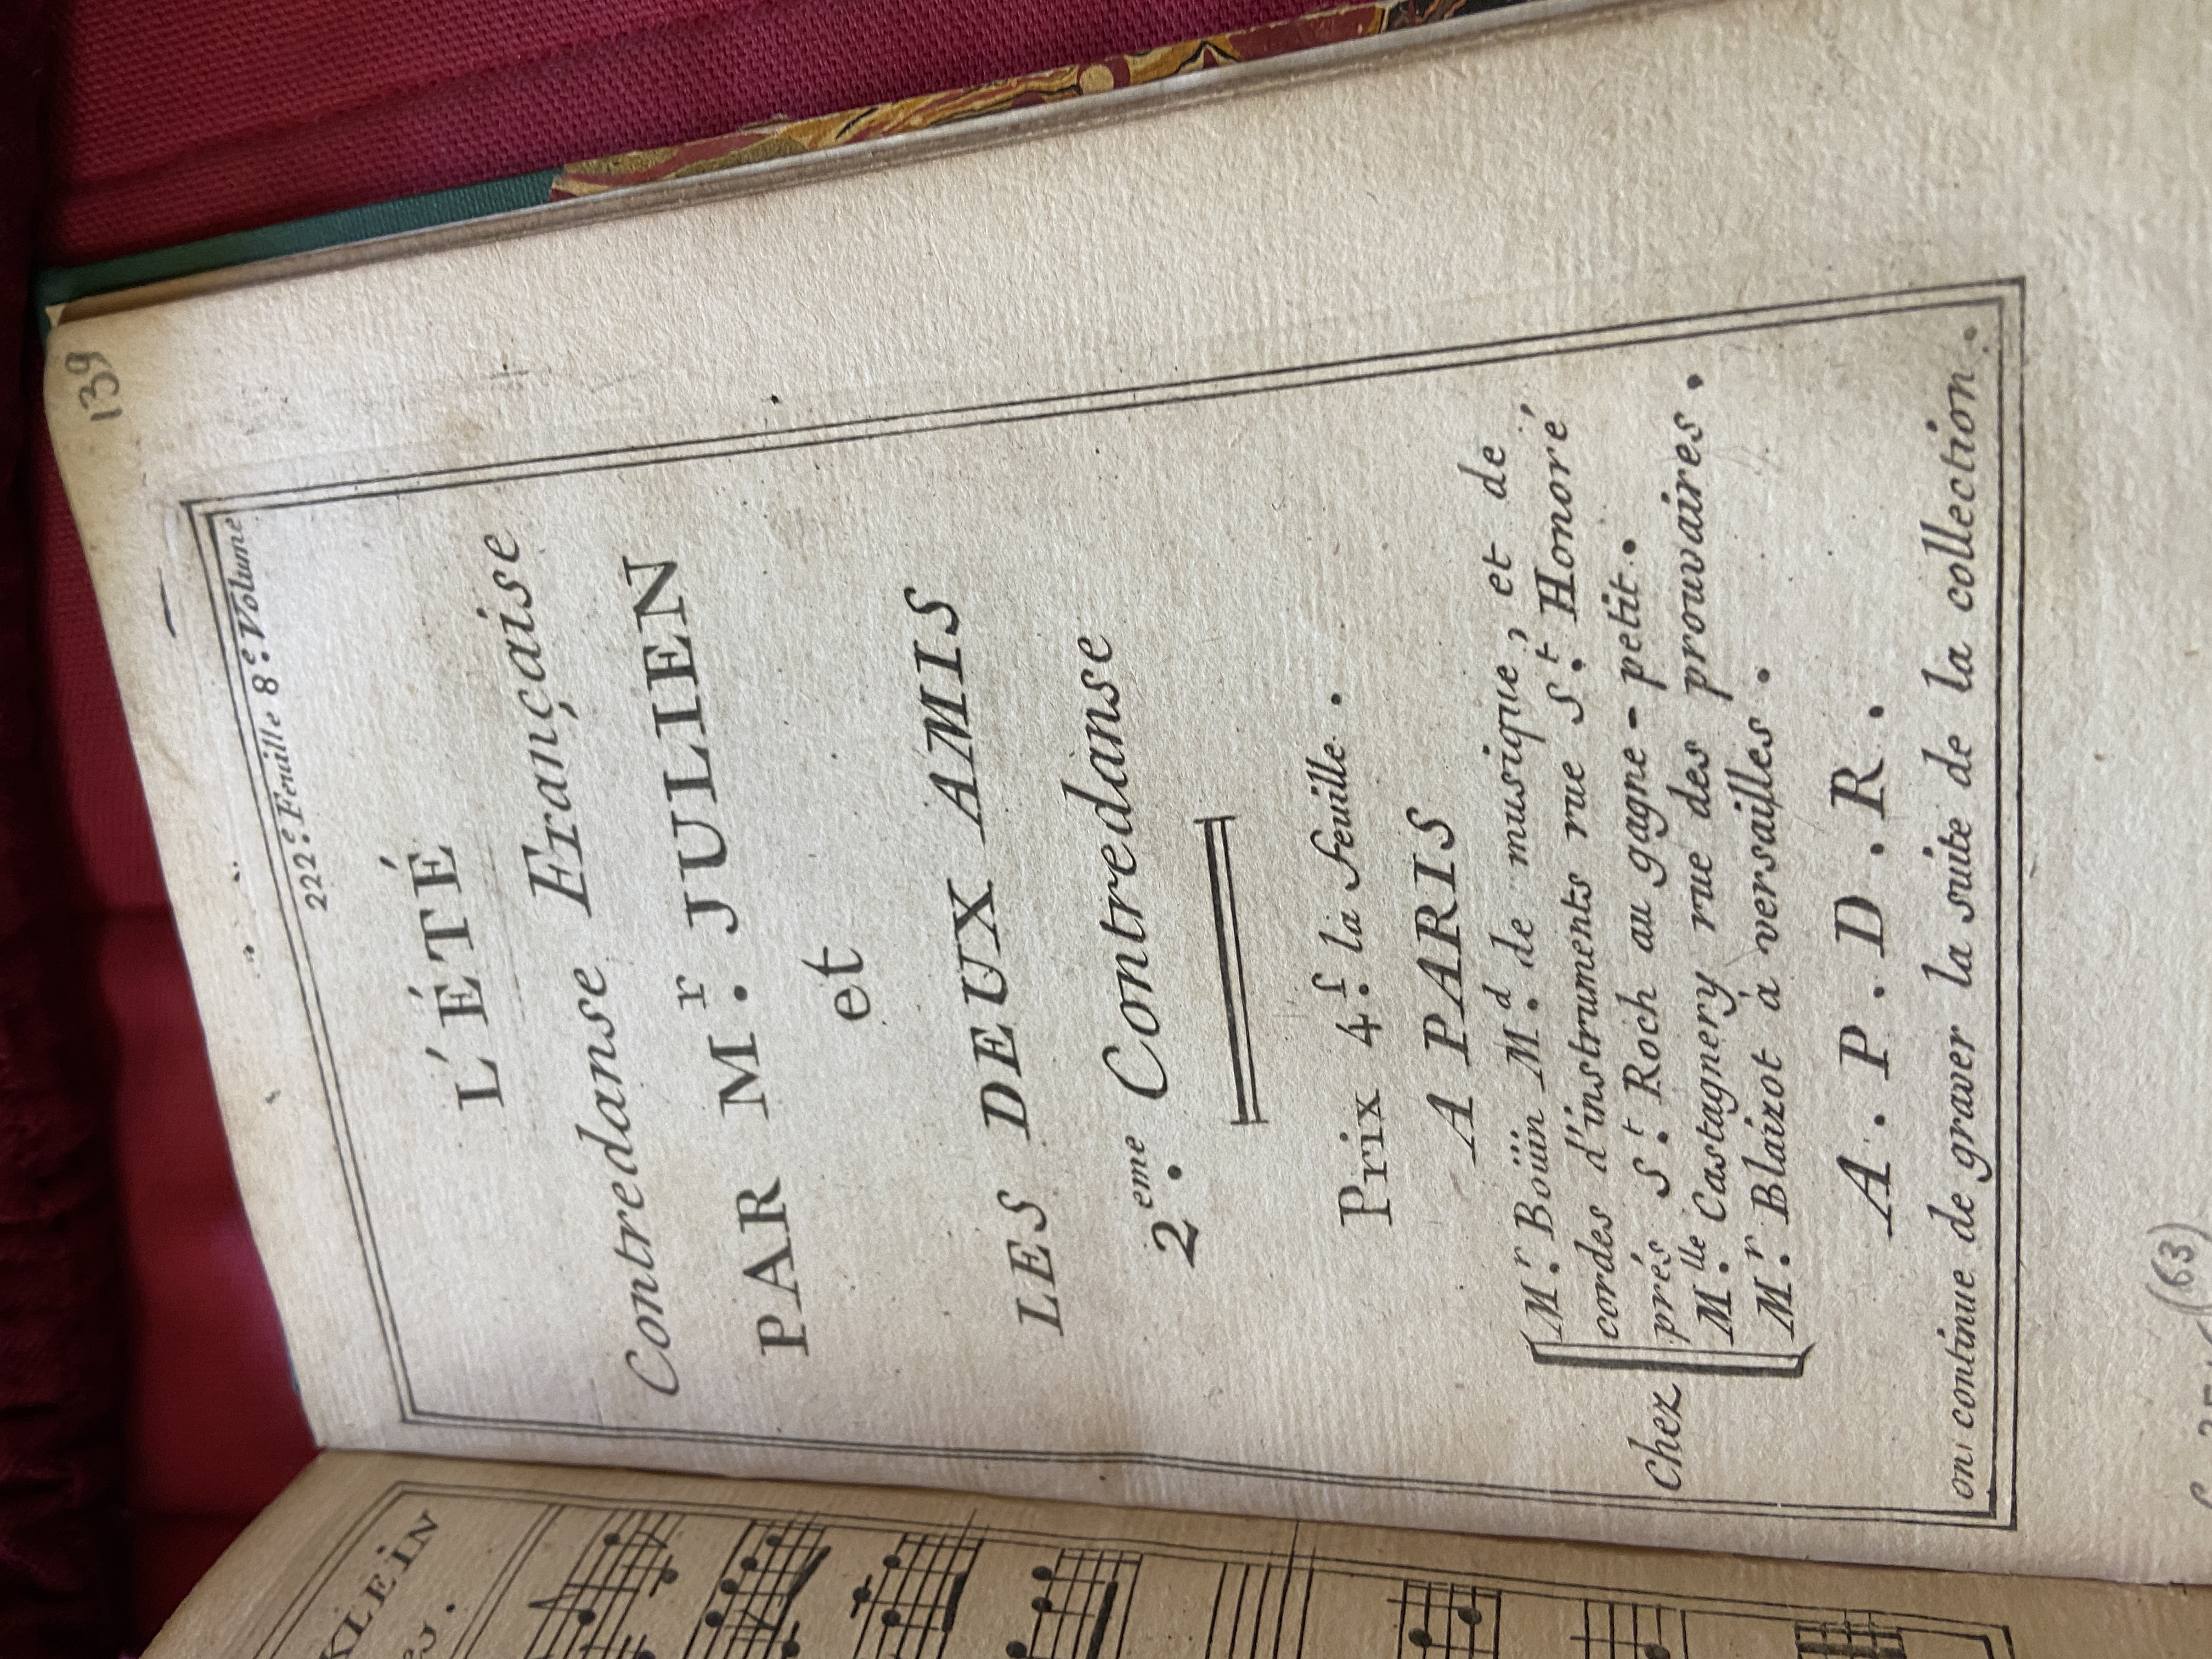 139
222.e Feuille 8.e Volume
L'ÉTÉ
Contredanse Française
PAR M.r JULIEN
et
LES DEUX AMIS
2.eme Contredanse
Prix 4.f la feuille.
A PARIS
Chez
M.r Boüin M.d de musique, et de
cordes d'instruments rue S.t Honoré
prés S.t Roch au gagne-petit.
M.lle Castagnery rue des prouvaires.
M.r Blaizot à versailles.
A.P.D.R.
on continue de graver la suite de la collection.
(63)
KLEIN